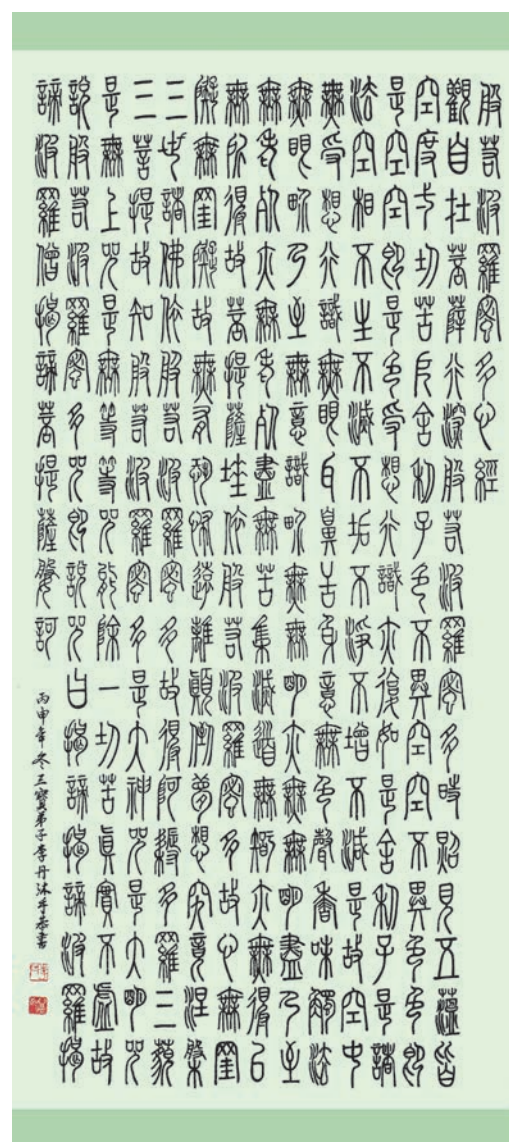 般若波羅蜜多心經
觀自在菩薩行深般若波羅蜜多時照見五蘊皆
空度一切苦厄舍利子色不異空空不異色色即
是空空即是色受想行識亦復如是舍利子是諸
法空相不生不滅不垢不淨不增不減是故空中
無受想行識無眼耳鼻舌身意無色聲香味觸法
無眼界乃至無意識界無無明亦無無明盡乃至
無老死亦無老死盡無苦集滅道無智亦無得以
無所得故菩提薩埵依般若波羅蜜多故心無罣
礙無罣礙故無有恐怖遠離顛倒夢想究竟涅槃
三世諸佛依般若波羅蜜多故得阿耨多羅三藐
三菩提故知般若波羅蜜多是大神咒是大明咒
是無上咒是無等等咒能除一切苦真實不虛故
說般若波羅蜜多咒即說咒曰揭諦揭諦波羅揭
諦波羅僧揭諦菩提薩婆訶
丙申年冬三寶弟子李丹沐手恭書